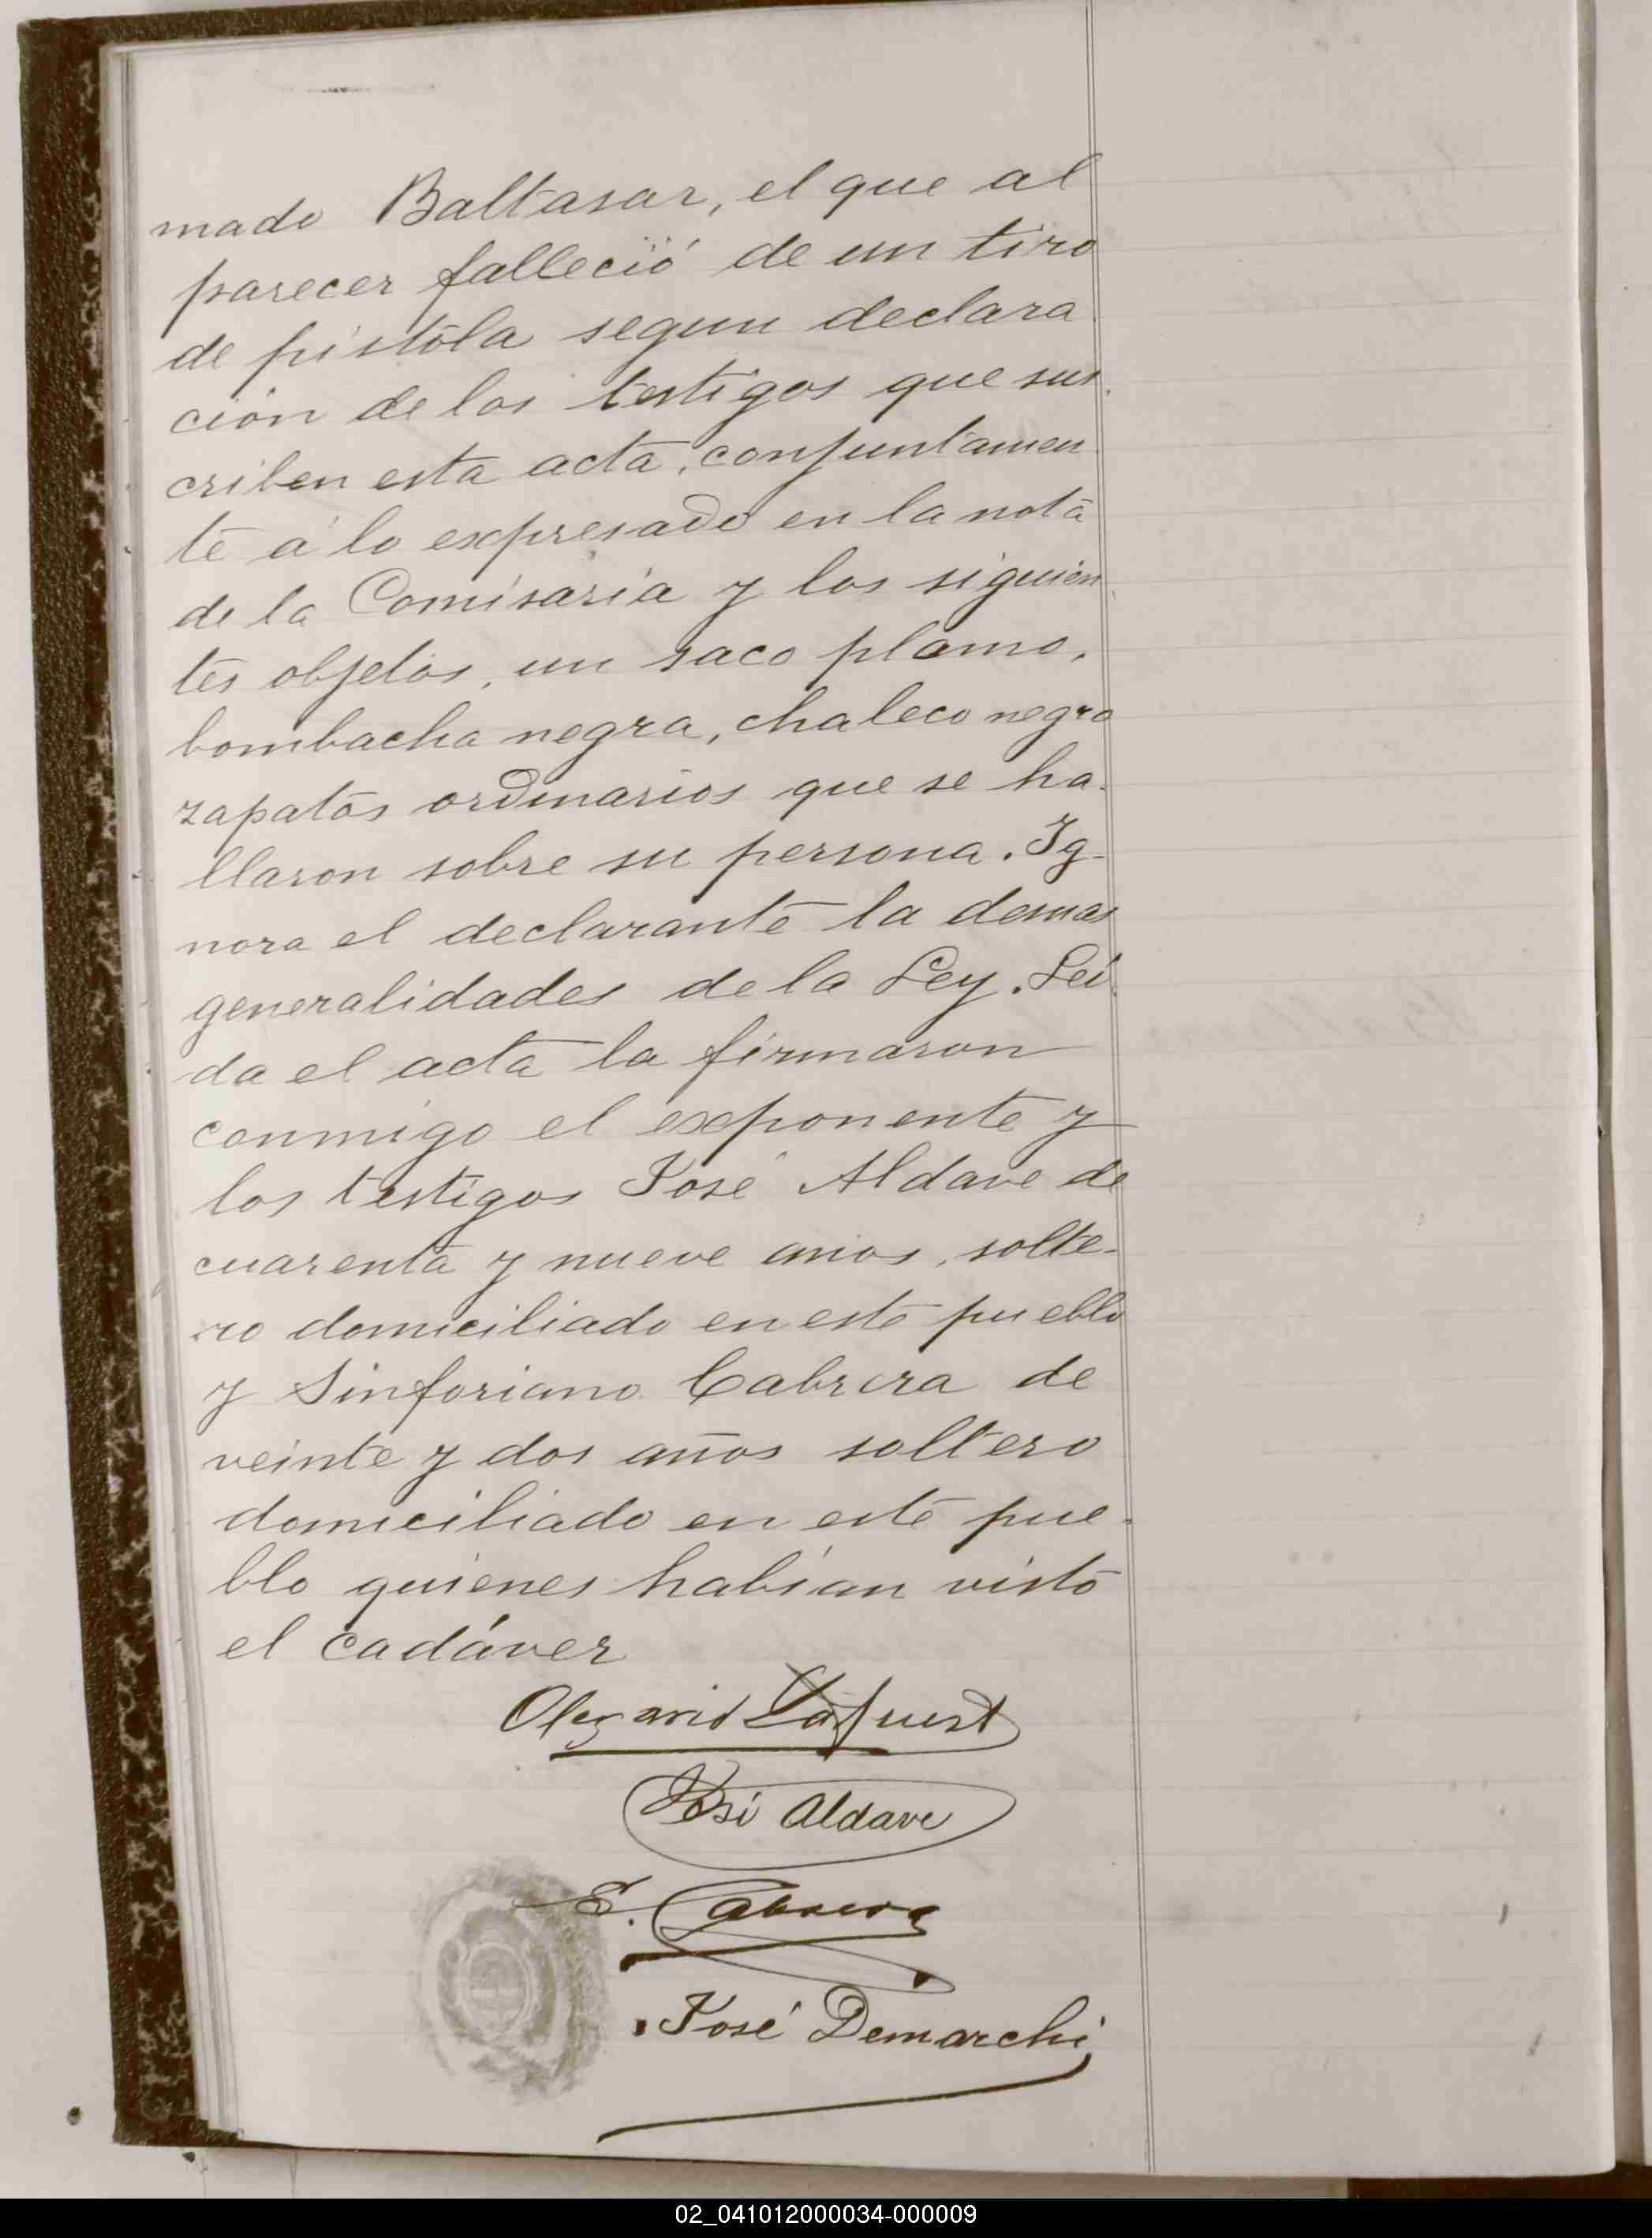 mado Baltasar, el que al
parecer falleció de un tiro
de pistola segun declara
ción de los testigos que sus
criben esta acta, conjuntamen
te á lo expresado en la nota
de la Comisaria y los siguien
tes objetos, un saco plomo,
bombacha negra, chaleco negro
zapatos ordinarios que se ha-
llaron sobre su persona. Ig-
nora el declarante la demas
generalidades de la Ley. Lei
da el acta la firmaron
conmigo el exponente y
los testigos José Aldave de
cuarenta y nueve años, solte-
ro domiciliado en este pueblo
y Sinforiano Cabrera de
veinte y dos años soltero
domiciliado en este pue-
blo quienes habian visto
el cadáver
Olegario
José Aldave
S. Cabrera
José Demarchi
02_041012000034-000009